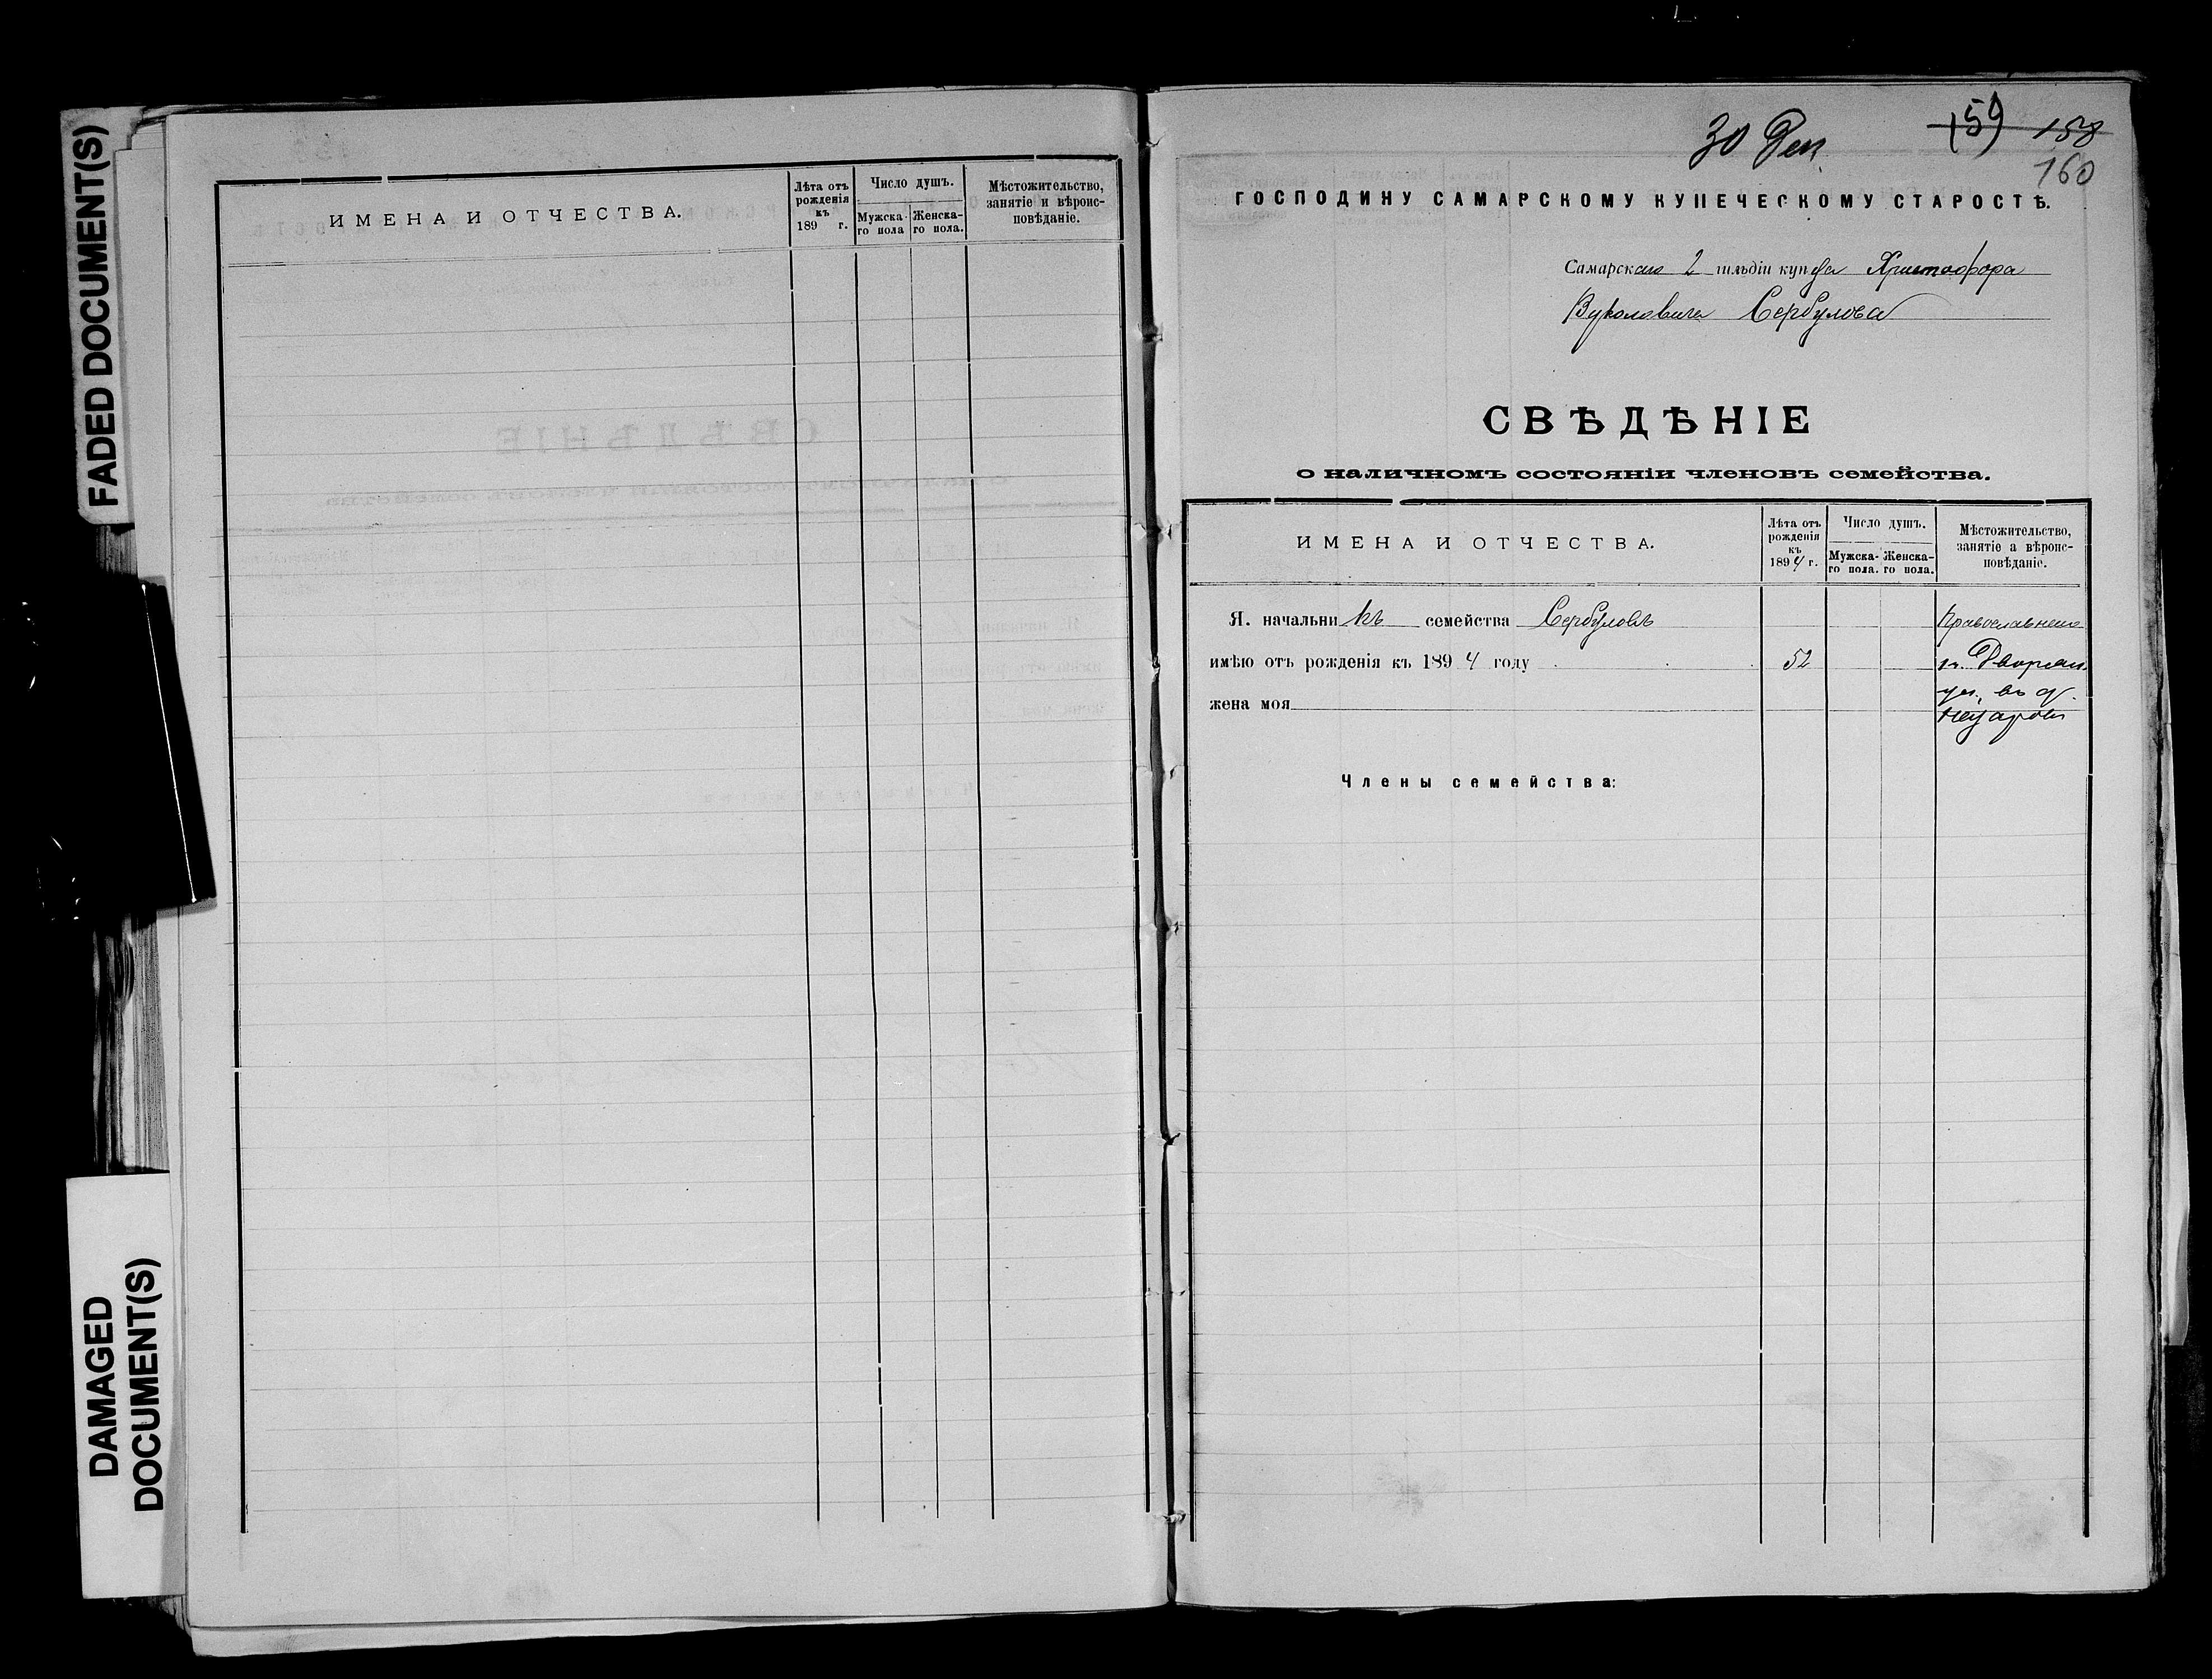 FADED DOCUMENT(S)
DAMAGED
DOCUMENT(S)
ИМЕНА И ОТЧЕСТВА.
Лѣта отъ
рожденія
къ
189 г.
Число душъ.
Мужска-
го пола
Женска-
го пола.
Мѣстожительство,
занятіе и вѣроис-
повѣданіе.
30 Дек
159 158
160
ГОСПОДИНУ САМАРСКОМУ КУПЕЧЕСКОМУ СТАРОСТѢ.
Самарскаго 2 гильдіи купца Христофора
Вуколовича Сербулова
СВѢДѢНІЕ
о наличномъ состояніи членовъ семейства.
ИМЕНА И ОТЧЕСТВА.
Лѣта отъ
рожденія
къ
1894 г.
Число душъ.
Мужска-
го пола.
Женска-
го пола.
Мѣстожительство,
занятіе а вѣроис-
повѣданіе.
Я. начальникъ семейства Сербуловъ
Православнаго
имѣю отъ рожденія къ 1894 году 52
на Дворян.
ул., въ д.
жена моя
Члены семейства: